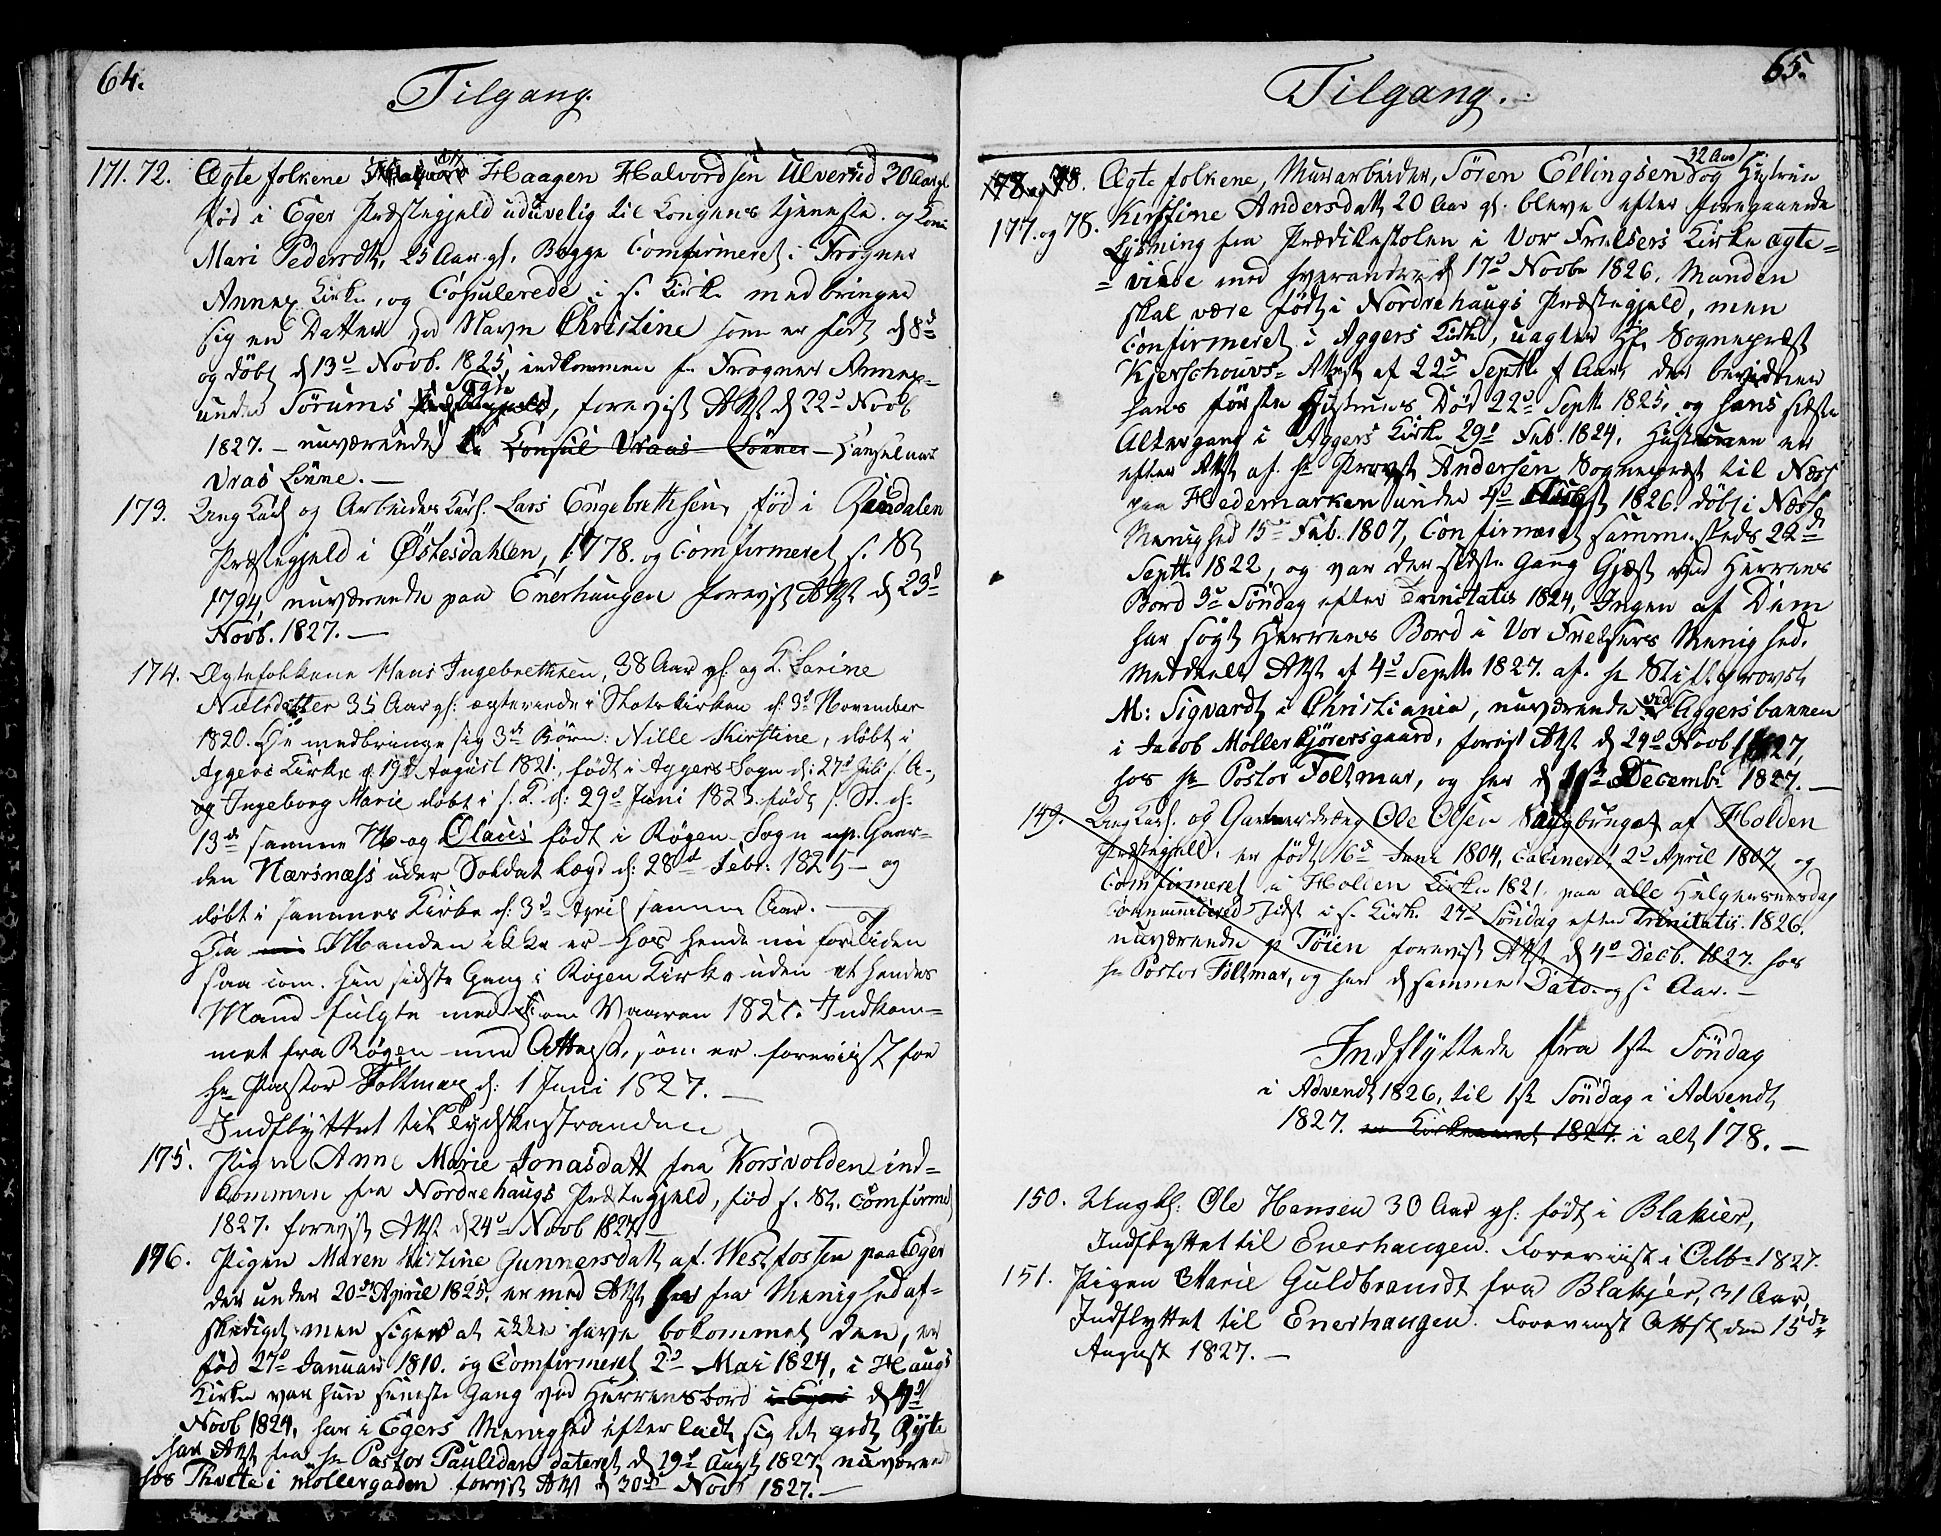 64.
Tilgang.
171.72. Ægtefolkene Haagen Halvordsen Ulverud 30 Aar gl
fød i Eger Præstegjeld uduvelig til Kongens tjeneste. og Kone
Mari Pedersdtr, 25 Aar gl. Begge Comfirmeret i Frogner
Annex Kirke, og Copulerede i s. Kirke medbringer
sig en Datter ved Navn Christine som er født d 8d
og døbt d 13d Novb. 1825, indkommen fra Frogner Annex
under Sørums Sogn, forevist Attst d 22d Novb
1827. – nuværende Consul Vraas Lønne
Vras Lønne. –
173. Ung Karl og Arbeids Karl. Lars Engebrethsen, fød i Rendalen
Præstegjeld i Østerdahlen, 1778. og Comfirmeret s. St
1794, nuværende paa Enerhaugen forevist Attst d 23d
Novb. 1827. –
174. Ægtefolkene Hans Ingebrethsen, 38 Aar gl: og K. Karine
Nielsdatter 35 Aar gl: ægteviede i Slotskirken d: 3d November
1820. De medbringe sig 3de Børn: Nille Kirstine, døbt i
Aggers Kirke d: 19d August 1821., født i Aggers Sogn d: 27d Juli s. A.,
og Ingeborg Marie døbt i s. K. d: 29d Juni 1823. født s. St. d:
13de samme M og Olaus født i Røgen Sogn Gaar-
den Nærsnæss uder Soldat lægd d: 28de Febr: 1825 – og
døbt i sammes Kirke d: 3d April samme Aar. –
Da Manden ikke er hos hende nu for Tiden
saa kom hun sidste Gang i Røgen Kirke uden at hendes
Mand fulgte med om Vaaren 1827. Indkom-
met fra Røgen med Attest, som er forevist for
Hr Pastor Foltmar d: 1 Juni 1827. –
Indflyttet til Tydskestranden
175. Pigen Anne Marie Jonasdatt fra Korsvolden ind-
kommen fra Nordrehaugs Præstegjeld, fød s. St. Comfirmed
1827. forevist Attst d 24d Novb 1827. –
176. Pigen Maren Kistine Gunnersdatt af Westfossen paa Eger
der under 20d April 1825, er med Attst fra Menighed af-
skediget men siger at ikke have bekommet den, er
fød 27d Januar 1810. og Comfirmeret 2d Mai 1824, i Haugs
Kirke var hun seneste Gang ved Herrensbord d 7d
Novb 1824, har i Egers Menighed efterladt sig et godt Rÿte
har Attst fra Hr Pastor Paulsdan dateret d 19d Augst 1827, nuværend
hos Thvete i Møllergaden forevist Attst d 30d Novb 1827. –
65.
Tilgang.
177. og 78. Ægtefolkene, Murarbeider, Søren Ellingsen 32 Aar og Hustrue
Kirstine Andersdatt, 20 Aar gl. bleve efter foregaaende
Lysning fra Prædikestolen i Vor Frelsers Kirke ægte-
viede med hverandre d 17d Novbr 1826. Manden
skal være født i Nordrehaugs Præstegjeld, men
Comfirmeret i Aggers Kirke, uagtet Hr Sognepræst
Kjerschouvs Attst af 22d Septbr f Aar, der bevidner
hans første Hustrues Død 22d Septb 1825, og hans sidste
Altergang i Aggers Kirke 29d Feb. 1824. Hustruen er
efter Attst af Hr Provst Andersen Sognepræst til Næss
paa Hedemarken under 4d 1826. døbt i Næss
Menighed 15d Feb. 1807, Confirmeret sammesteds 22d
Septbr. 1822, og var der sidste Gang Gjæst ved Herrens
Bord 3d Søndag efter Trinitatis 1824, Ingen af Dem
har søgt Herrens Bord i Vor Frelsers Menighed.
Meddeelt Attst af 4d Septbr 1827. af Hr Stiftsprovst
M: Sigvardt i Christiania, nuværende ved Aggersbanken
i Jacob Møllerkjørersgaard, forevist Attst d 29d Novb 1827,
hos Hr Pastor Foltmar, og her d 1ste Decemb. 1827. –
149. Ung Karl. og Gartnerdreng Ole Olsen Raugbunget af Holden
Præstegjeld. er født 16d Juni 1804, Vacineret 2d April 1807, og
Comfirmeret i Holden Kirke 1821. paa alle Helgensdag
Communiceret sidst i s. Kirke 27d Søndag efter Trinitatis. 1826.
nuværende p Tøien forevist Attst d 4d Decb. 1827. hos
Hr Pastor Foltmar, og her d samme Dato og s. Aar. –
Indflyttede fra 1ste Søndag
i Advendt 1826, til 1ste Søndag i Advendt
1827. Kirkeaaret 1827. i alt 178. –
150. Ungkl. Ole Hansen 30 Aar gl: født i Blakier,
Indflyttet til Enerhaugen. Foreviist i Octbr 1827.
151. Pigen Marie Guldbrandt fra Blakjer, 31 Aar,
Indflyttet til Enerhaugen. Foreviist Attst den 15de
August 1827. –